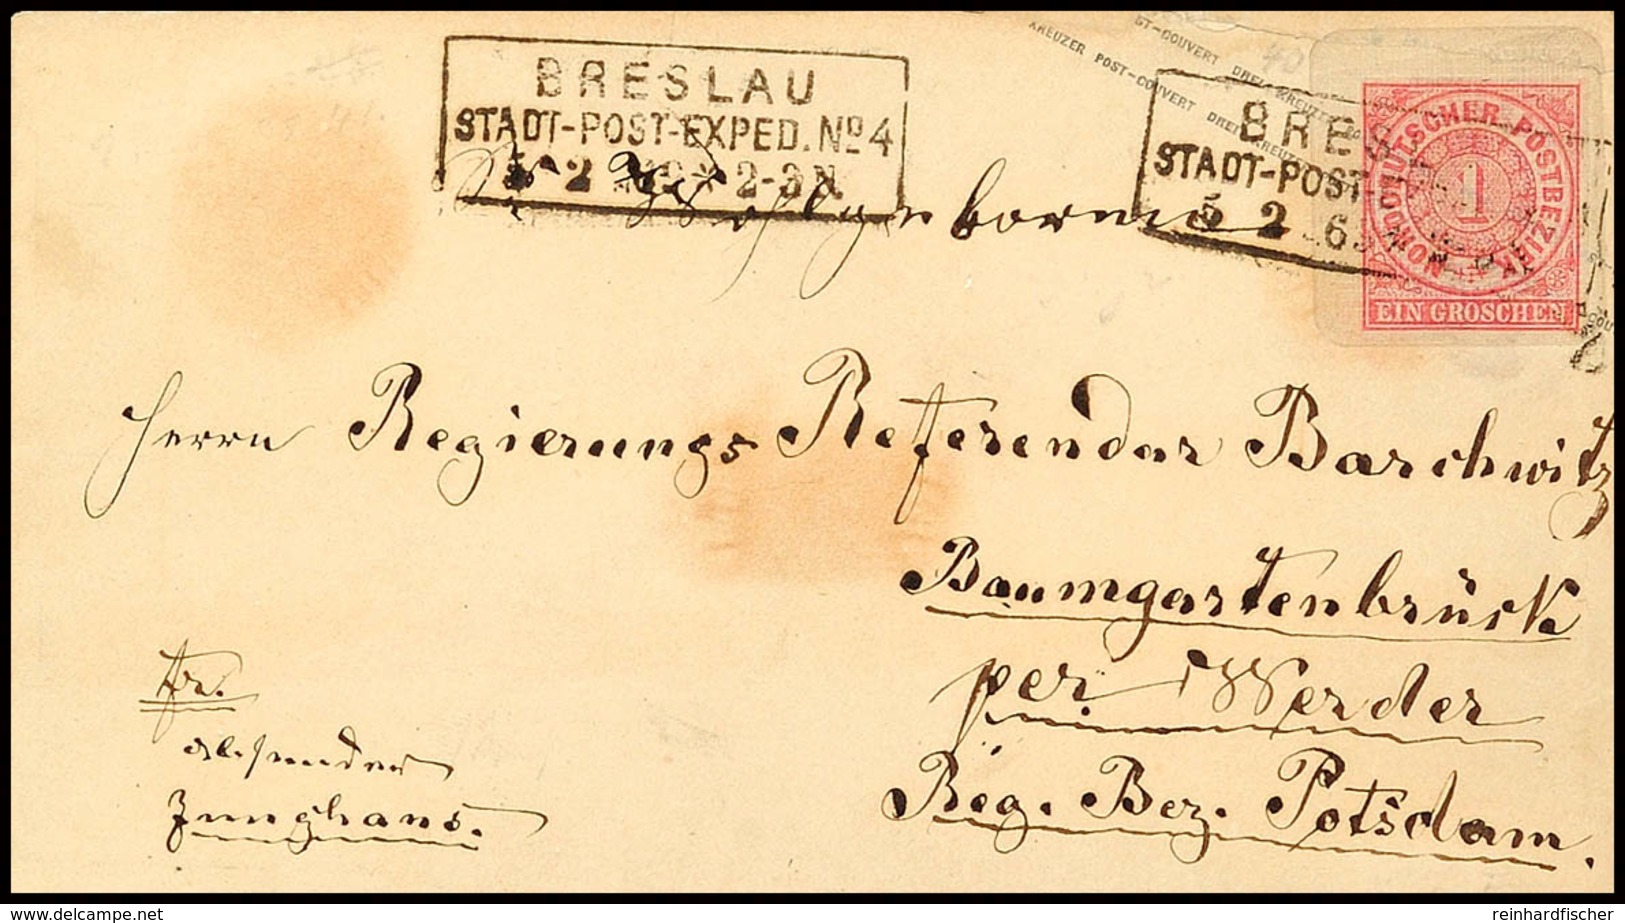 BRESLAU
STADT-POST-EXPED. No 4
5 2 2-3N.
KREUZER POST-COUVERT DREI KREUZER
ST-COUVERT DREI KREUZER
BRES
STADT-POST-
5 2 6
NORDDEUTSCHER POSTBEZIRK
1
EIN GROSCHEN
Sr. Wohlgeboren
Herrn Regierungs Referendar Barchwitz
Baumgartenbrück
per Werder
Reg. Bez. Potsdam.
fr.
absender
Junghans.
www.delcampe.net
reinhardfischer